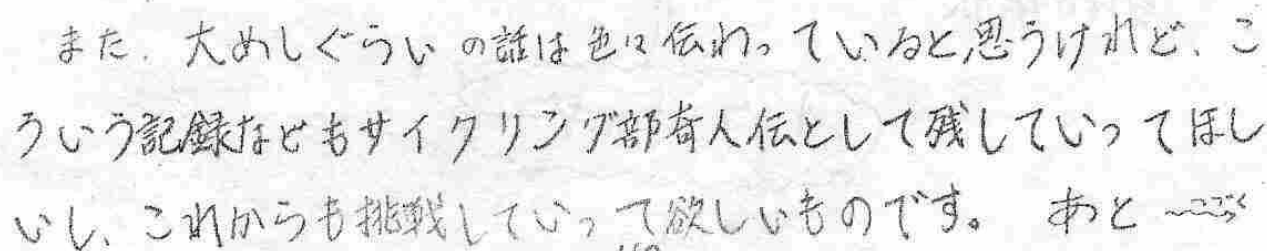 また、大めしぐらいの話は色々伝わっていると思うけれど、こ
ういう記録などもサイクリング部奇人伝として残していってほし
いし、これからも挑戦していって欲しいものです。 あと